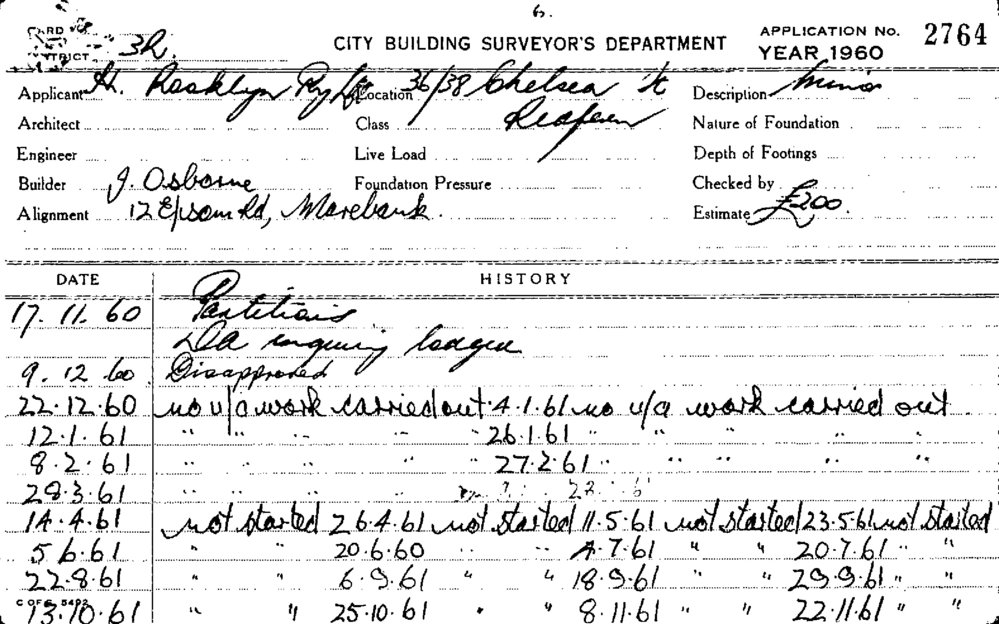 6.
CARD No
DISTRICT 3h
CITY BUILDING SURVEYOR'S DEPARTMENT
APPLICATION No. 2764
YEAR 1960
Applicant H. Rosklyn Pty Ltd Location 36/38 Chelsea St Description Minor
Architect Class Redfern Nature of Foundation
Engineer Live Load Depth of Footings
Builder J. Osborne Foundation Pressure Checked by
Alignment 12 Epsom Rd, Morebank. Estimate £200.
DATE HISTORY
17.11.60 Partitions
DA enquiry lodged
9.12.60 Disapproved
22.12.60 no u/a work carried out 4.1.61 no u/a work carried out
12.1.61 " " " " 26.1.61 " " " " "
8.2.61 " " " " 27.2.61 " " " " "
28.3.61 " " " "
14.4.61 not started 26.4.61 not started 11.5.61 not started 23.5.61 not started
5.6.61 " " 20.6.60 " " 4.7.61 " " 20.7.61 " "
22.8.61 " " 6.9.61 " " 18.9.61 " " 29.9.61 " "
C OF S 5492
13.10.61 " " 25.10.61 " " 8.11.61 " " 22.11.61 " "